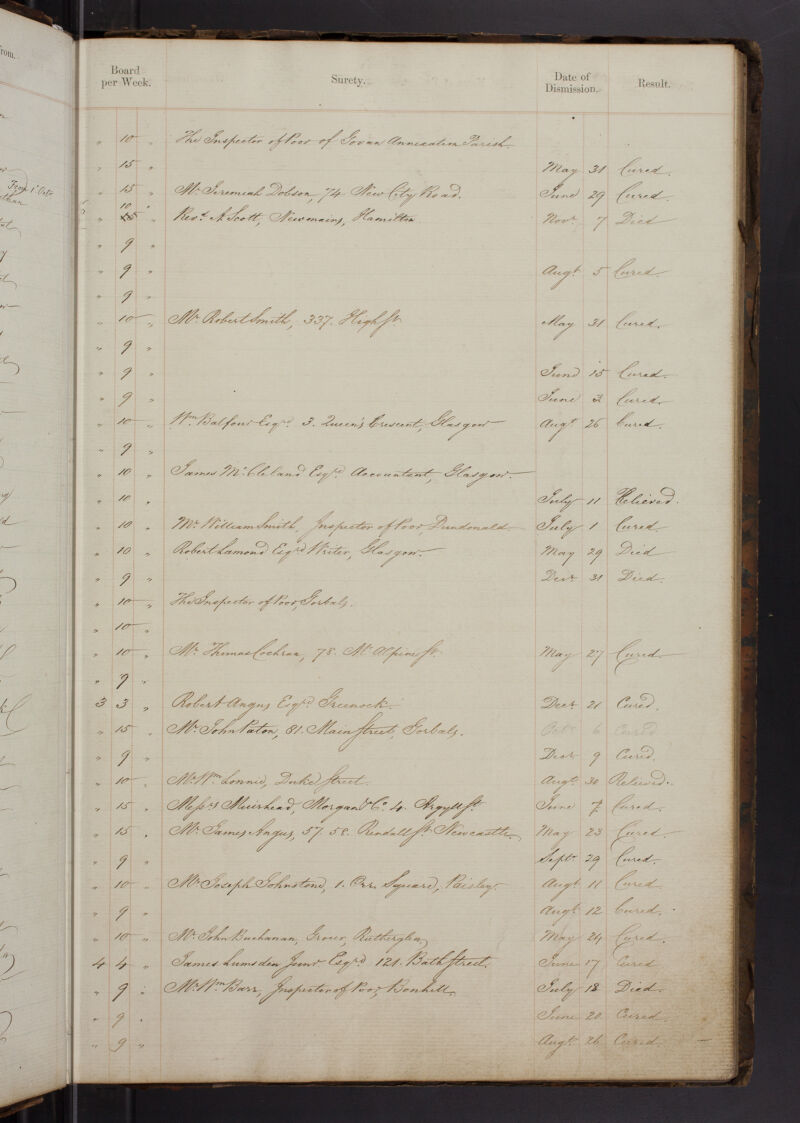 Board per Week. Surety. Date of Dismission. Result.
" 10 " The Inspector of Poor of Govan Annexation Parish
" 15 " May 31 Cured.
" 15 " Mr Jeremiah Dobson, 74 New City Road. June 29 Cured.
" 10 " Revd. A Scott, Newmains, Hamilton Novr 7 Died
" 9 "
" 9 " Augt. 5 Cured
" 9 "
" 10 " Mr Robert Smith, 337. High St. May 31 Cured.
" 9 "
" 9 " June 15 Cured.
" 9 " June 3 Cured.
" 10 " Wm. Balfour Esqr. 3. Queen's Crescent, Glasgow Augt 26 Cured.
" 9 "
" 10 " James McCleland Esqrd. Accountant, Glasgow.
" 10 " July 11 Relieved.
" 10 " Mr William Smith, Inspector of Poor, Dundonald July 1 Cured.
" 10 " Robert Lamond Esqrd Writer, Glasgow. May 29 Died
" 9 " Decr 31 Died.
" 10 " The Inspector of Poor, Gorbals.
" 10 "
" 10 " Mr Thomas Cochran, 78. McAlpine St. May 27 Cured
" 9 "
3 3 " Robert Angus Esqrd. Greenock. Decr 21 Cured.
" 15 " Mr. John Paton, 81. Main Street, Gorbals. Octr 6 Cured
" 9 " Decr 9 Cured.
" 10 " Mr. Wm. Lonnie, Duke Street. Augt. 30 Relieved.
" 15 " Messrs Muirhead, Morgan & Co. 4. Argyll St. June 7 Cured.
" 15 " Mr. James Angus, 57. 58. Rendall St. Newcastle. May 23 Cured.
" 9 " Septr 29 Cured.
" 10 " Mr. Joseph Johnstone, 1. Orr Square, Paisley. Augt 11 Cured
" 9 " Augt. 12 Cured.
" 10 " Mr. John Buchanan, Grocer, Rutherglen May 24 Cured.
4 4 " James Lumsden Junr Esqrd 121. Bath Street. June 17 Cured
" 9 " Mr. Wm. Barr, Inspector of Poor, Bonhill. July 18 Died.
" 9 " June 20 Cured.
" 9 " Augt. 26 Cured.